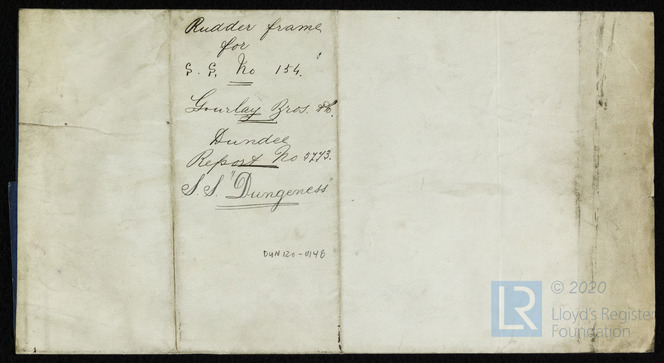 Rudder frame
for
S. S. No 154.
Gourlay Bros. &c.
Dundee
Report No 5773.
S.S "Dungeness"
DUN120-0148
LR
© 2020
Lloyd's Register
Foundation